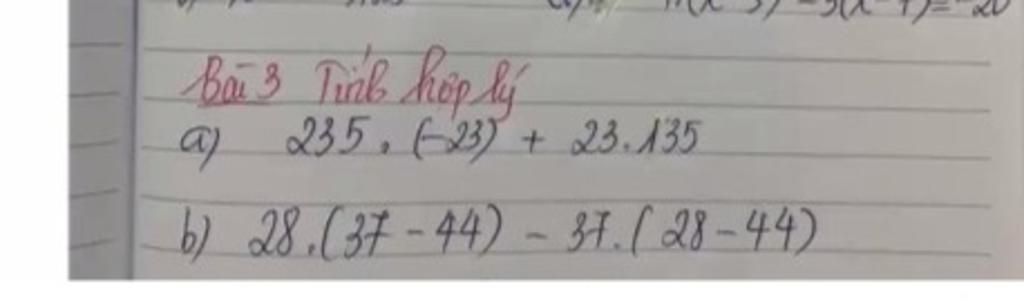 Bài 3 Tính hợp lý
a) 235 . (-23) + 23.135
b) 28.(37 - 44) - 37.(28 - 44)